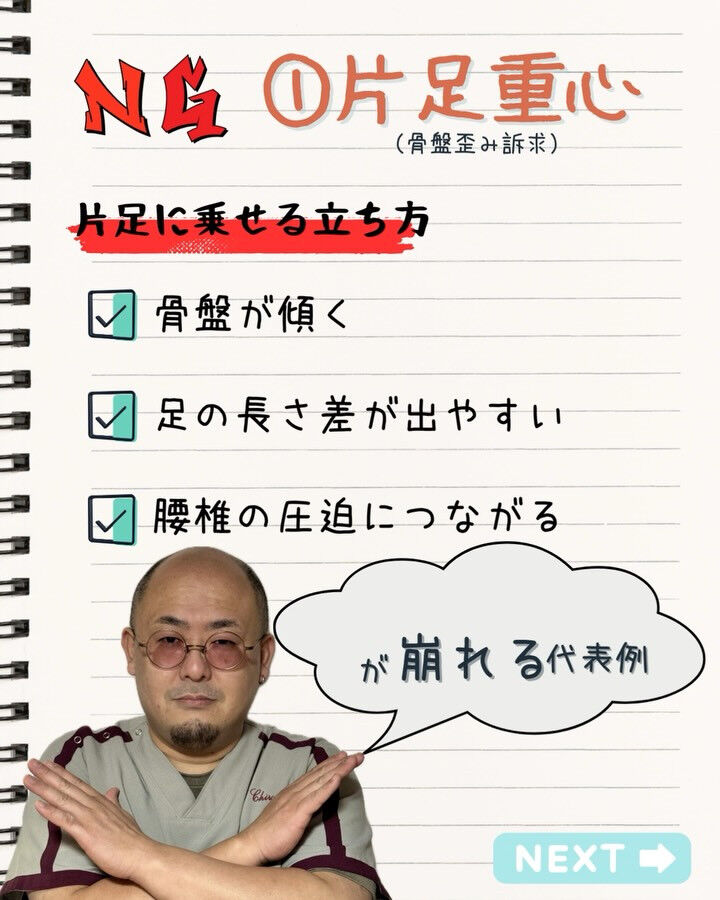 NG ①片足重心
(骨盤歪み訴求)
片足に乗せる立ち方
骨盤が傾く
足の長さ差が出やすい
腰椎の圧迫につながる
が崩れる代表例
NEXT